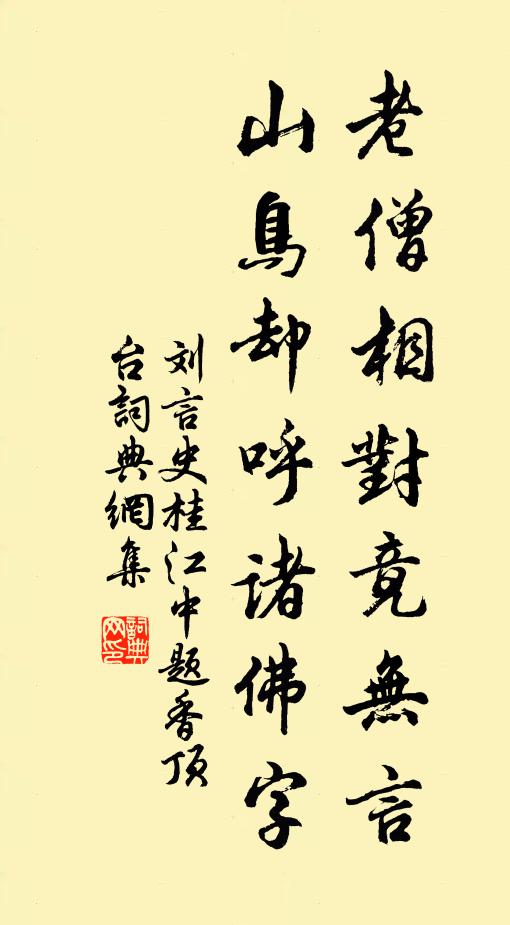 老僧相對竟無言
山鳥却呼諸佛字
刘言史桂江中题香顶
台詞典網集
詞典網印